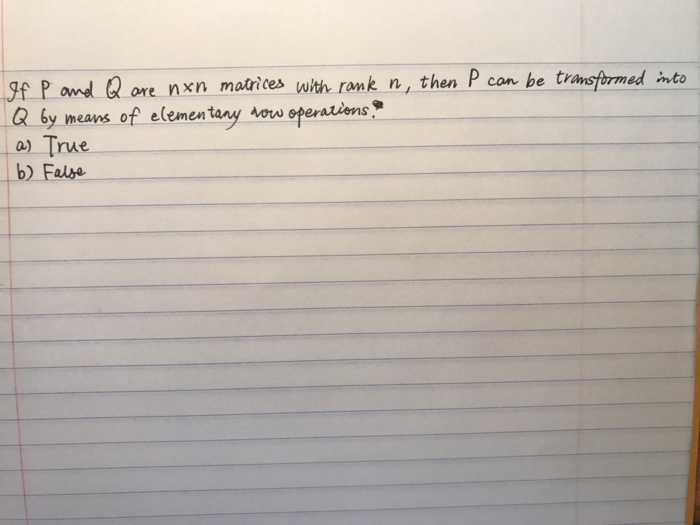 If P and Q are n×n matrices with rank n, then P can be transformed into
Q by means of elementary row operations?
a) True
b) False